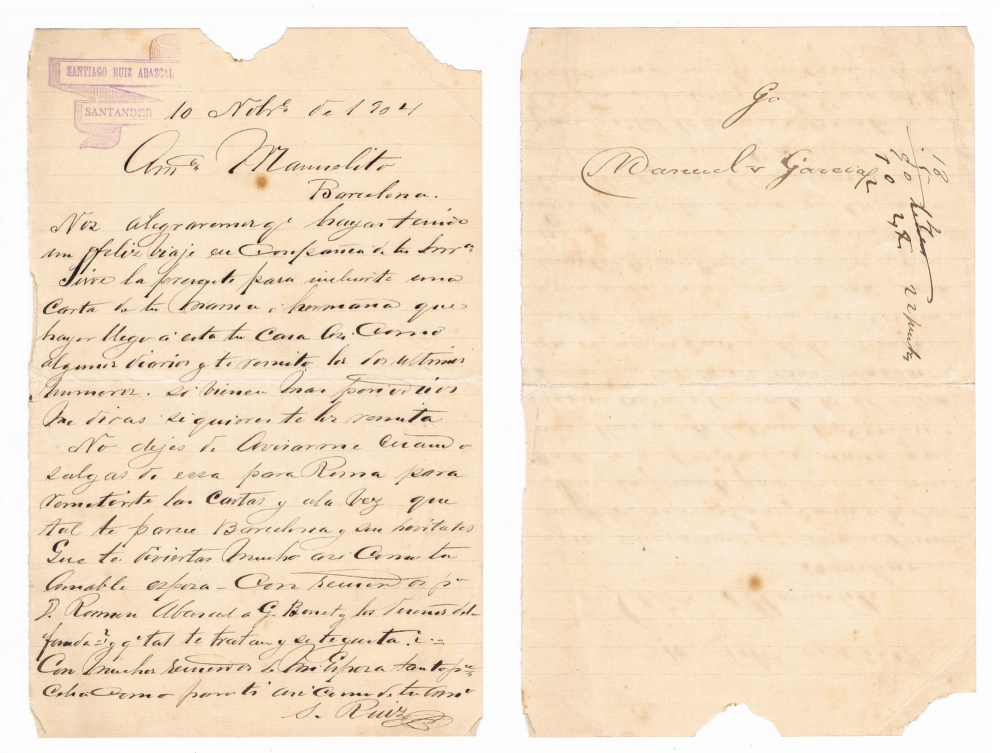 SANTIAGO RUIZ ABASCAL
SANTANDER
10 Nobre de 1904
Amo Manuelito
Barcelona.
Nos alegraremos qe hayas tenido
un feliz viaje en Conpañia de tu
Sirve la presente para incluirte una
Carta de tu mama i hermana que
hayer llego á esta tu Casa Asi Como
algunos diarios y te remito los dos ultimos
numeros. si vienen mas periodicos
me diras si quieres te los remita
No dejes de Avisarme Cuando
salgas de essa para Roma para
remitirte las Cartas y ala vez que
tal te parece Barcelona y sus
Que te diviertas mucho asi Como tu
Amable esposa - Con recuerdos pa
D. Ramon Abascal a G. Benet y los Dueños del
fonda y qe tal te tratan y se te gusta
Con muchos recuerdos de mi Esposa tanto pa
Celia Como para ti asi Como de tu Amo
S. Ruiz
Manuel Garcia
18